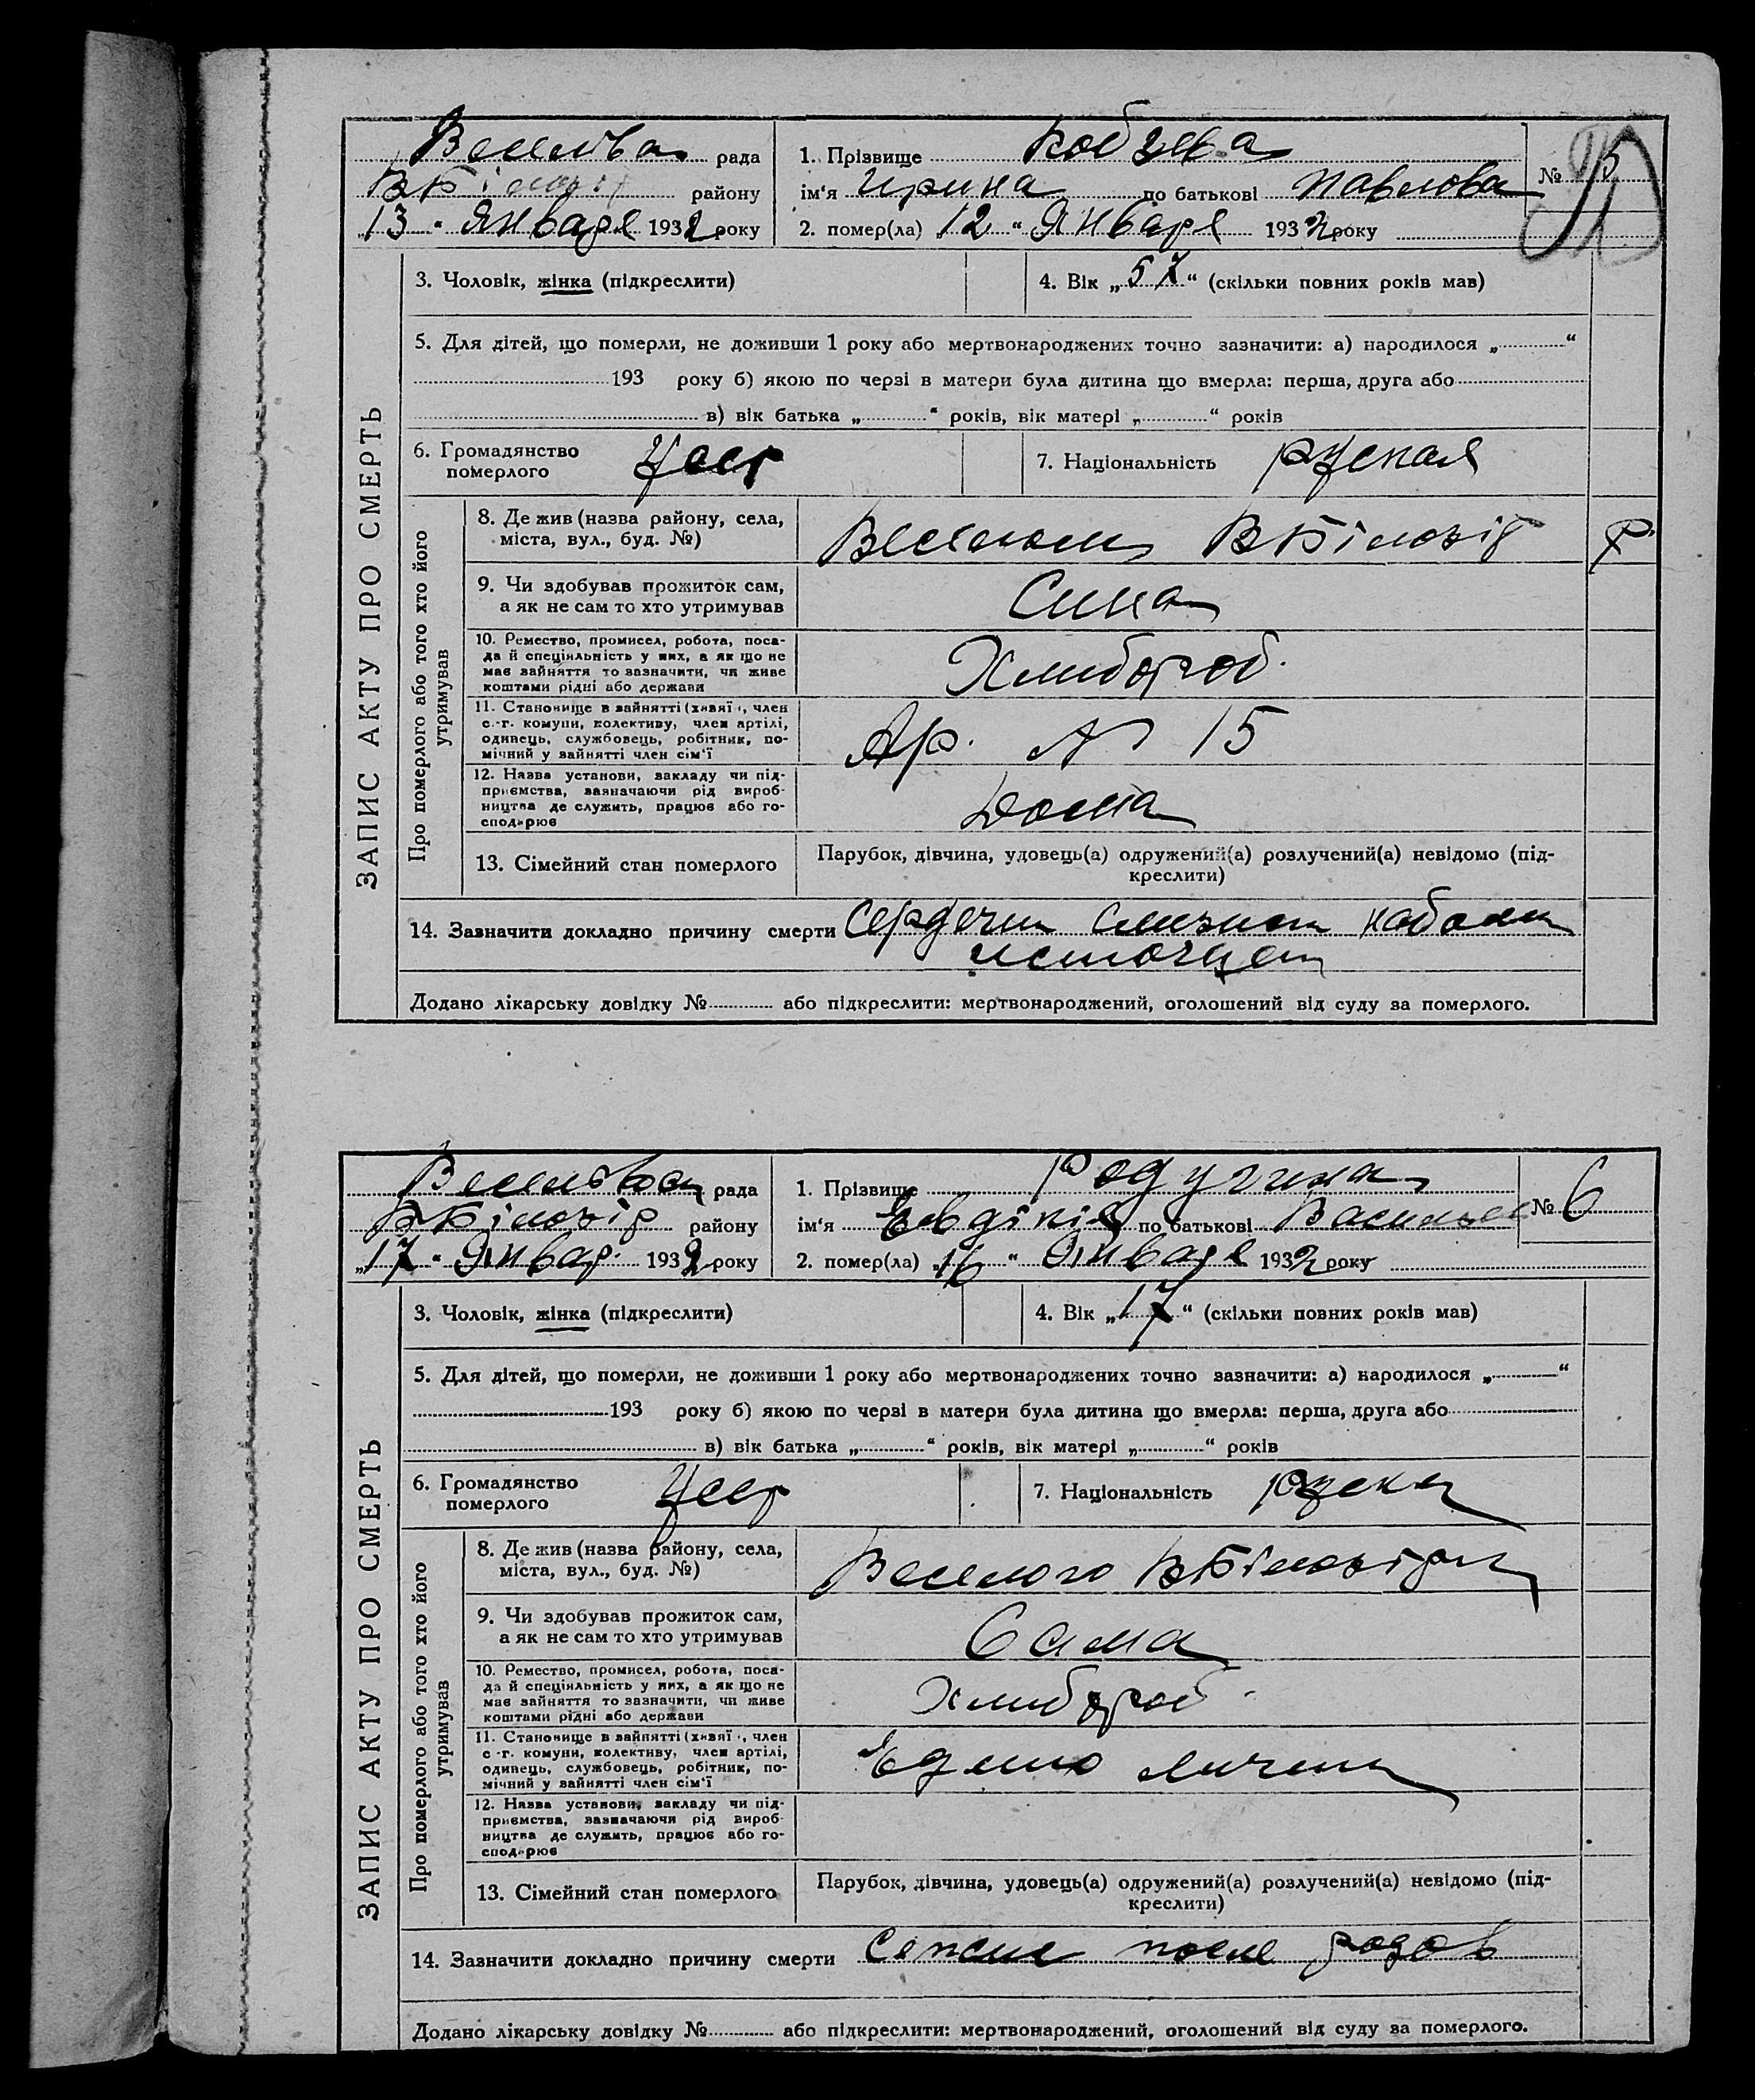 ЗАПИС АКТУ ПРО СМЕРТЬ
рада
ВБілозір району
„13“ Января 1932 року
1. Прізвище Кобзева
ім‘я Ирина по батькові Павлова
2. помер(ла) 12 “ Января 1932 року
№ 5
3. Чоловік, жінка (підкреслити)
4. Вік „57“ (скільки повних років мав)
5. Для дітей, що померли, не доживши 1 року або мертвонароджених точно зазначити: а) народилося „ “
193 року б) якою по черзі в матери була дитина що вмерла: перша, друга або
в) вік батька „ “ років, вік матері „ “ років
6. Громадянство
померлого
Усср
7. Національність руская
Про померлого або того хто його
утримував
8. Де жив (назва району, села,
міста, вул., буд. №)
ВБілозір
9. Чи здобував прожиток сам,
а як не сам то хто утримував
Сина
10. Ремество, промисел, робота, поса-
да й спеціяльність у них, а як що не
має зайняття то зазначити, чи живе
коштами рідні або держави
Хлибороб.
11. Становище в зайнятті (хазяї , член
с.-г. комуни, колективу, член артілі,
одинець, службовець, робітник, по-
мічний у зайнятті член сім‘ї
Ар. № 15
12. Назва установи, закладу чи під-
приємства, зазначаючи рід вироб-
ництва де служить, працює або го-
сподарює
Дома
13. Сімейний стан померлого
Парубок, дівчина, удовець(а) одружений(а) розлучений(а) невідомо (під-
креслити)
14. Зазначити докладно причину смерти
Додано лікарську довідку № або підкреслити: мертвонароджений, оголошений від суду за померлого.
ЗАПИС АКТУ ПРО СМЕРТЬ
рада
ВБілозір району
„17“ Январ. 1932 року
1. Прізвище Родугина
ім‘я Евдікія по батькові
2. помер(ла) „16“ Января 1932 року
№ 6
3. Чоловік, жінка (підкреслити)
4. Вік „17“ (скільки повних років мав)
5. Для дітей, що померли, не доживши 1 року або мертвонароджених точно зазначити: а) народилося „ “
193 року б) якою по черзі в матери була дитина що вмерла: перша, друга або
в) вік батька „ “ років, вік матері „ “ років
6. Громадянство
померлого
Усср
7. Національність
Про померлого або того хто його
утримував
8. Де жив (назва району, села,
міста, вул., буд. №)
Веселого
9. Чи здобував прожиток сам,
а як не сам то хто утримував
Сама
10. Ремество, промисел, робота, поса-
да й спеціяльність у них, а як що не
має зайняття то зазначити, чи живе
коштами рідні або держави
Хлибороб
11. Становище в зайнятті (хазяї , член
с.-г. комуни, колективу, член артілі,
одинець, службовець, робітник, по-
мічний у зайнятті член сім‘ї
12. Назва установи, закладу чи під-
приємства, зазначаючи рід вироб-
ництва де служить, працює або го-
сподарює
13. Сімейний стан померлого
Парубок, дівчина, удовець(а) одружений(а) розлучений(а) невідомо (під-
креслити)
14. Зазначити докладно причину смерти Сепсис после родов
Додано лікарську довідку № або підкреслити: мертвонароджений, оголошений від суду за померлого.